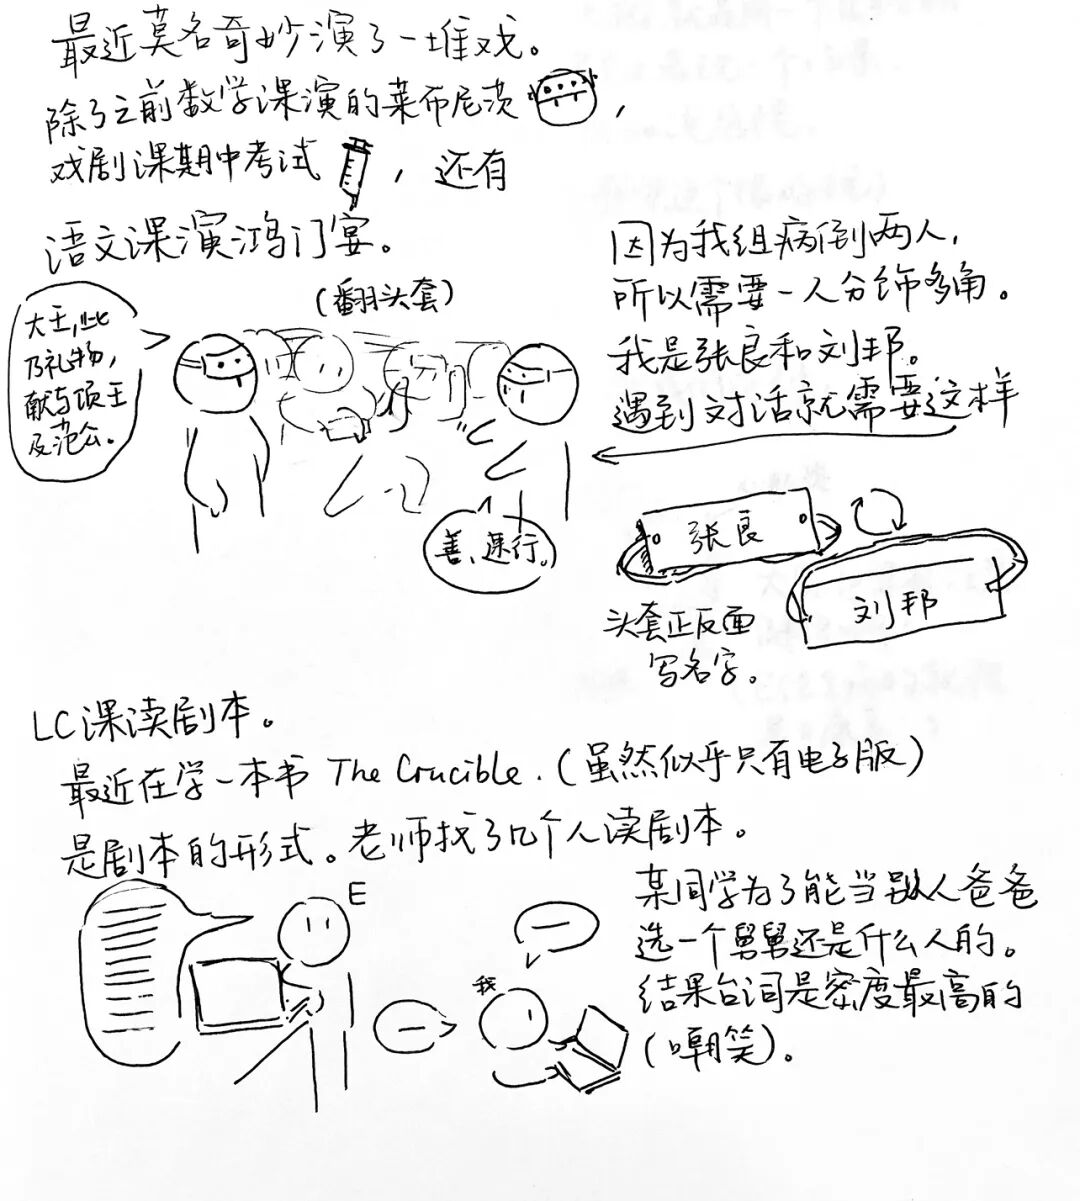 最近莫名奇妙演了一堆戏。
除了之前数学课演的莱布尼茨，
戏剧课期中考试，还有
语文课演鸿门宴。
（翻头套）
大王，此
乃礼物，
献与项王
及范公。
善、速行。
因为我组病倒两人，
所以需要一人分饰多角。
我是张良和刘邦。
遇到对话就需要这样
张良
刘邦
头套正反面
写名字。
LC课读剧本。
最近在学一本书 The Crucible.（虽然似乎只有电子版）
是剧本的形式。老师找了几个人读剧本。
E
我
某同学为了能当别人爸爸
选一个舅舅还是什么人的。
结果台词是密度最高的
（嘲笑）。